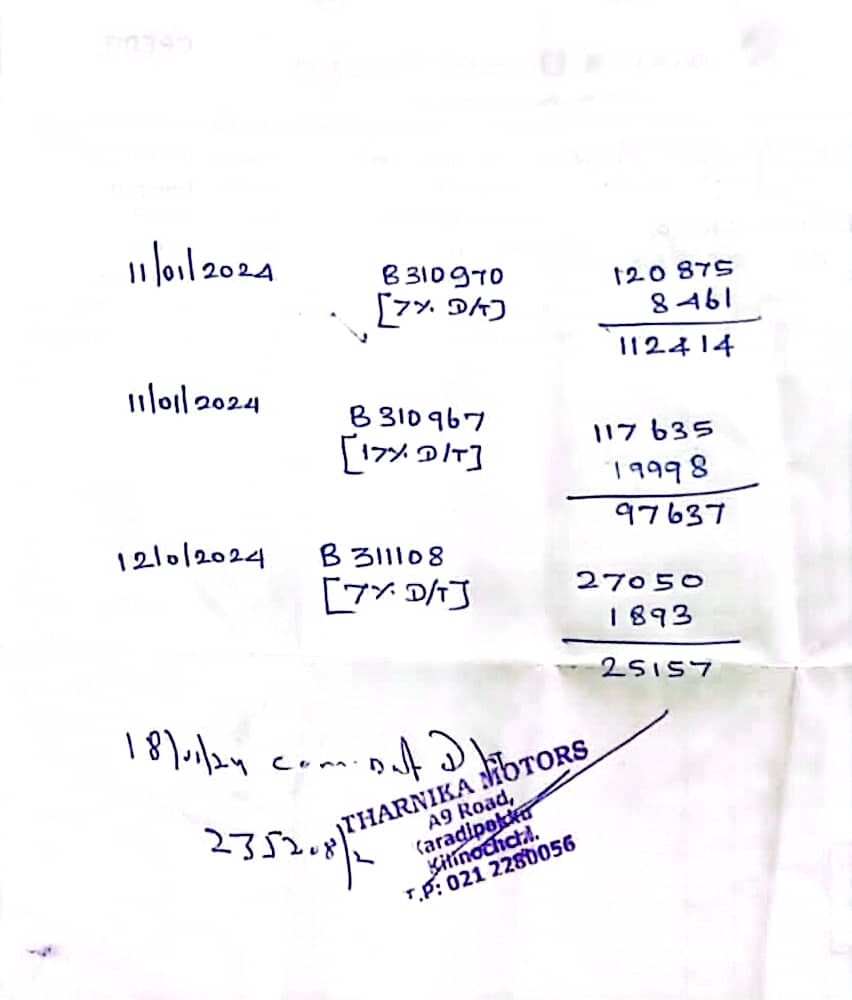 11/01/2024 B310970 120875
[7% D/T] 8461
112414
11/01/2024 B310967 117635
[17% D/T] 19998
97637
12/0/2024 B311108 27050
[7% D/T] 1893
25157
18/01/24
THARNIKA MOTORS
A9 Road,
Karadipokku
Kilinochchi.
T.P: 021 2280056
235208/2